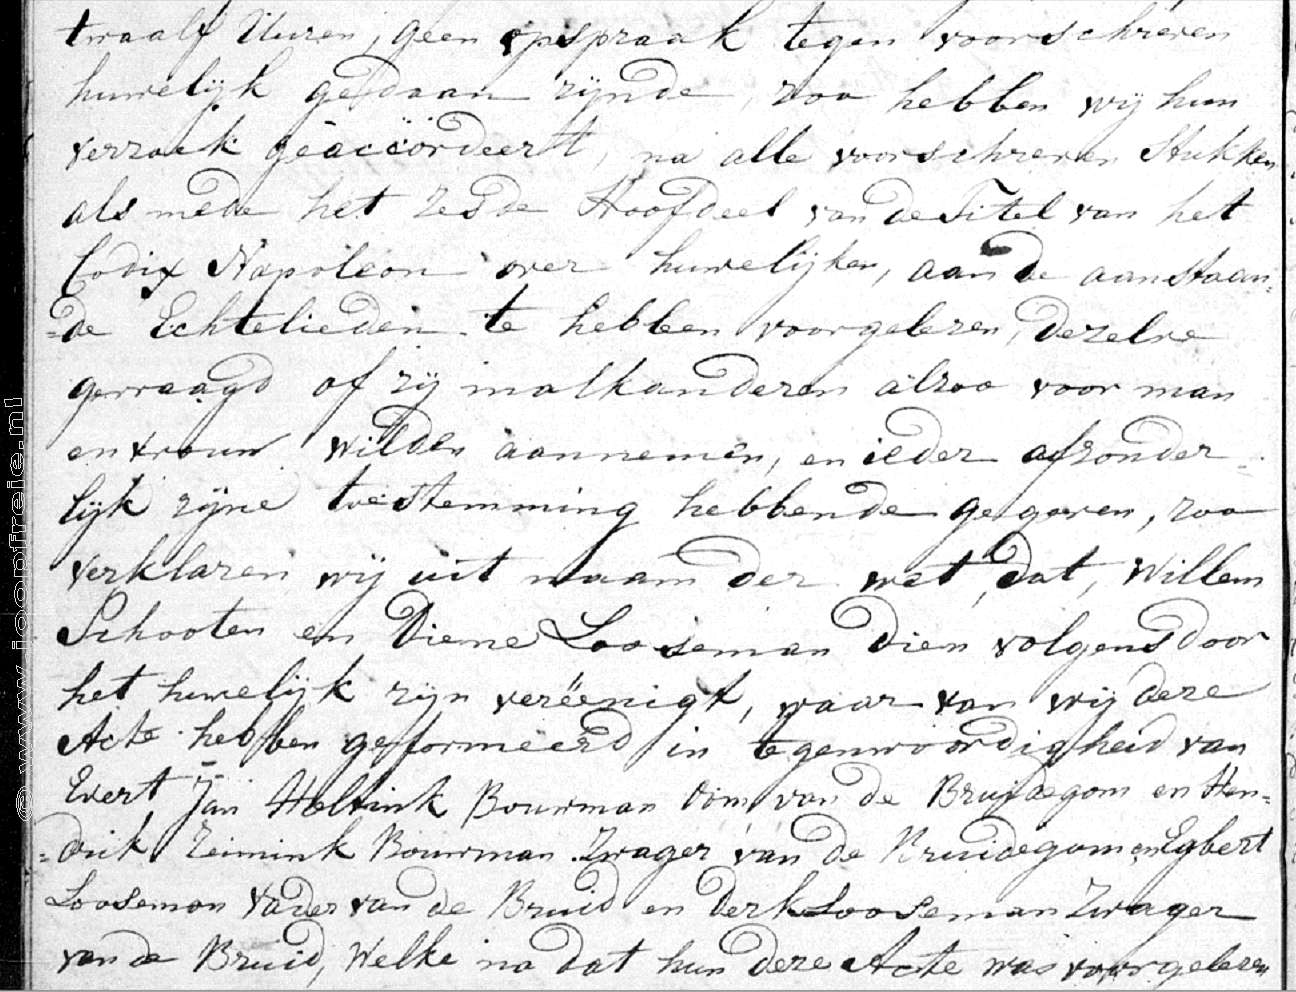 twaalf Uuren, geen opspraak tegen voorschreven
huwelijk gedaan zijnde, zoo hebben wij hun
verzoek geaccordeert, na alle voorschreven Stukken
als mede het zesde Hoofdeel van de Titel van het
Codix Napoleon over huwelijken, aan de aanstaan=
=de Echtelieden te hebben voorgelezen, dezelve
gevraagd of zij malkanderen alzoo voor man
en vrouw wilden aannemen, en ieder afzonder=
lijk zijne toestemming hebbende gegeven, zoo
verklaren wij uit naam der wet, dat, Willem
Schooten en Diene Looseman dien volgens door
het huwelijk zijn vereënigt, waar van wij deze
Acte hebben geformeerd in tegenwoordigheid van
Evert Jan Heltink Bouwman Oom van de Bruidegom en Hen=
=drik Zeimink Bouwman Zwager van de Bruidegom en Egbert
Looseman Vader van de Bruid en Derk Looseman Zwager
van de Bruid, Welke na dat hun deze Acte was voorgelezen
© www.joopfreie.nl